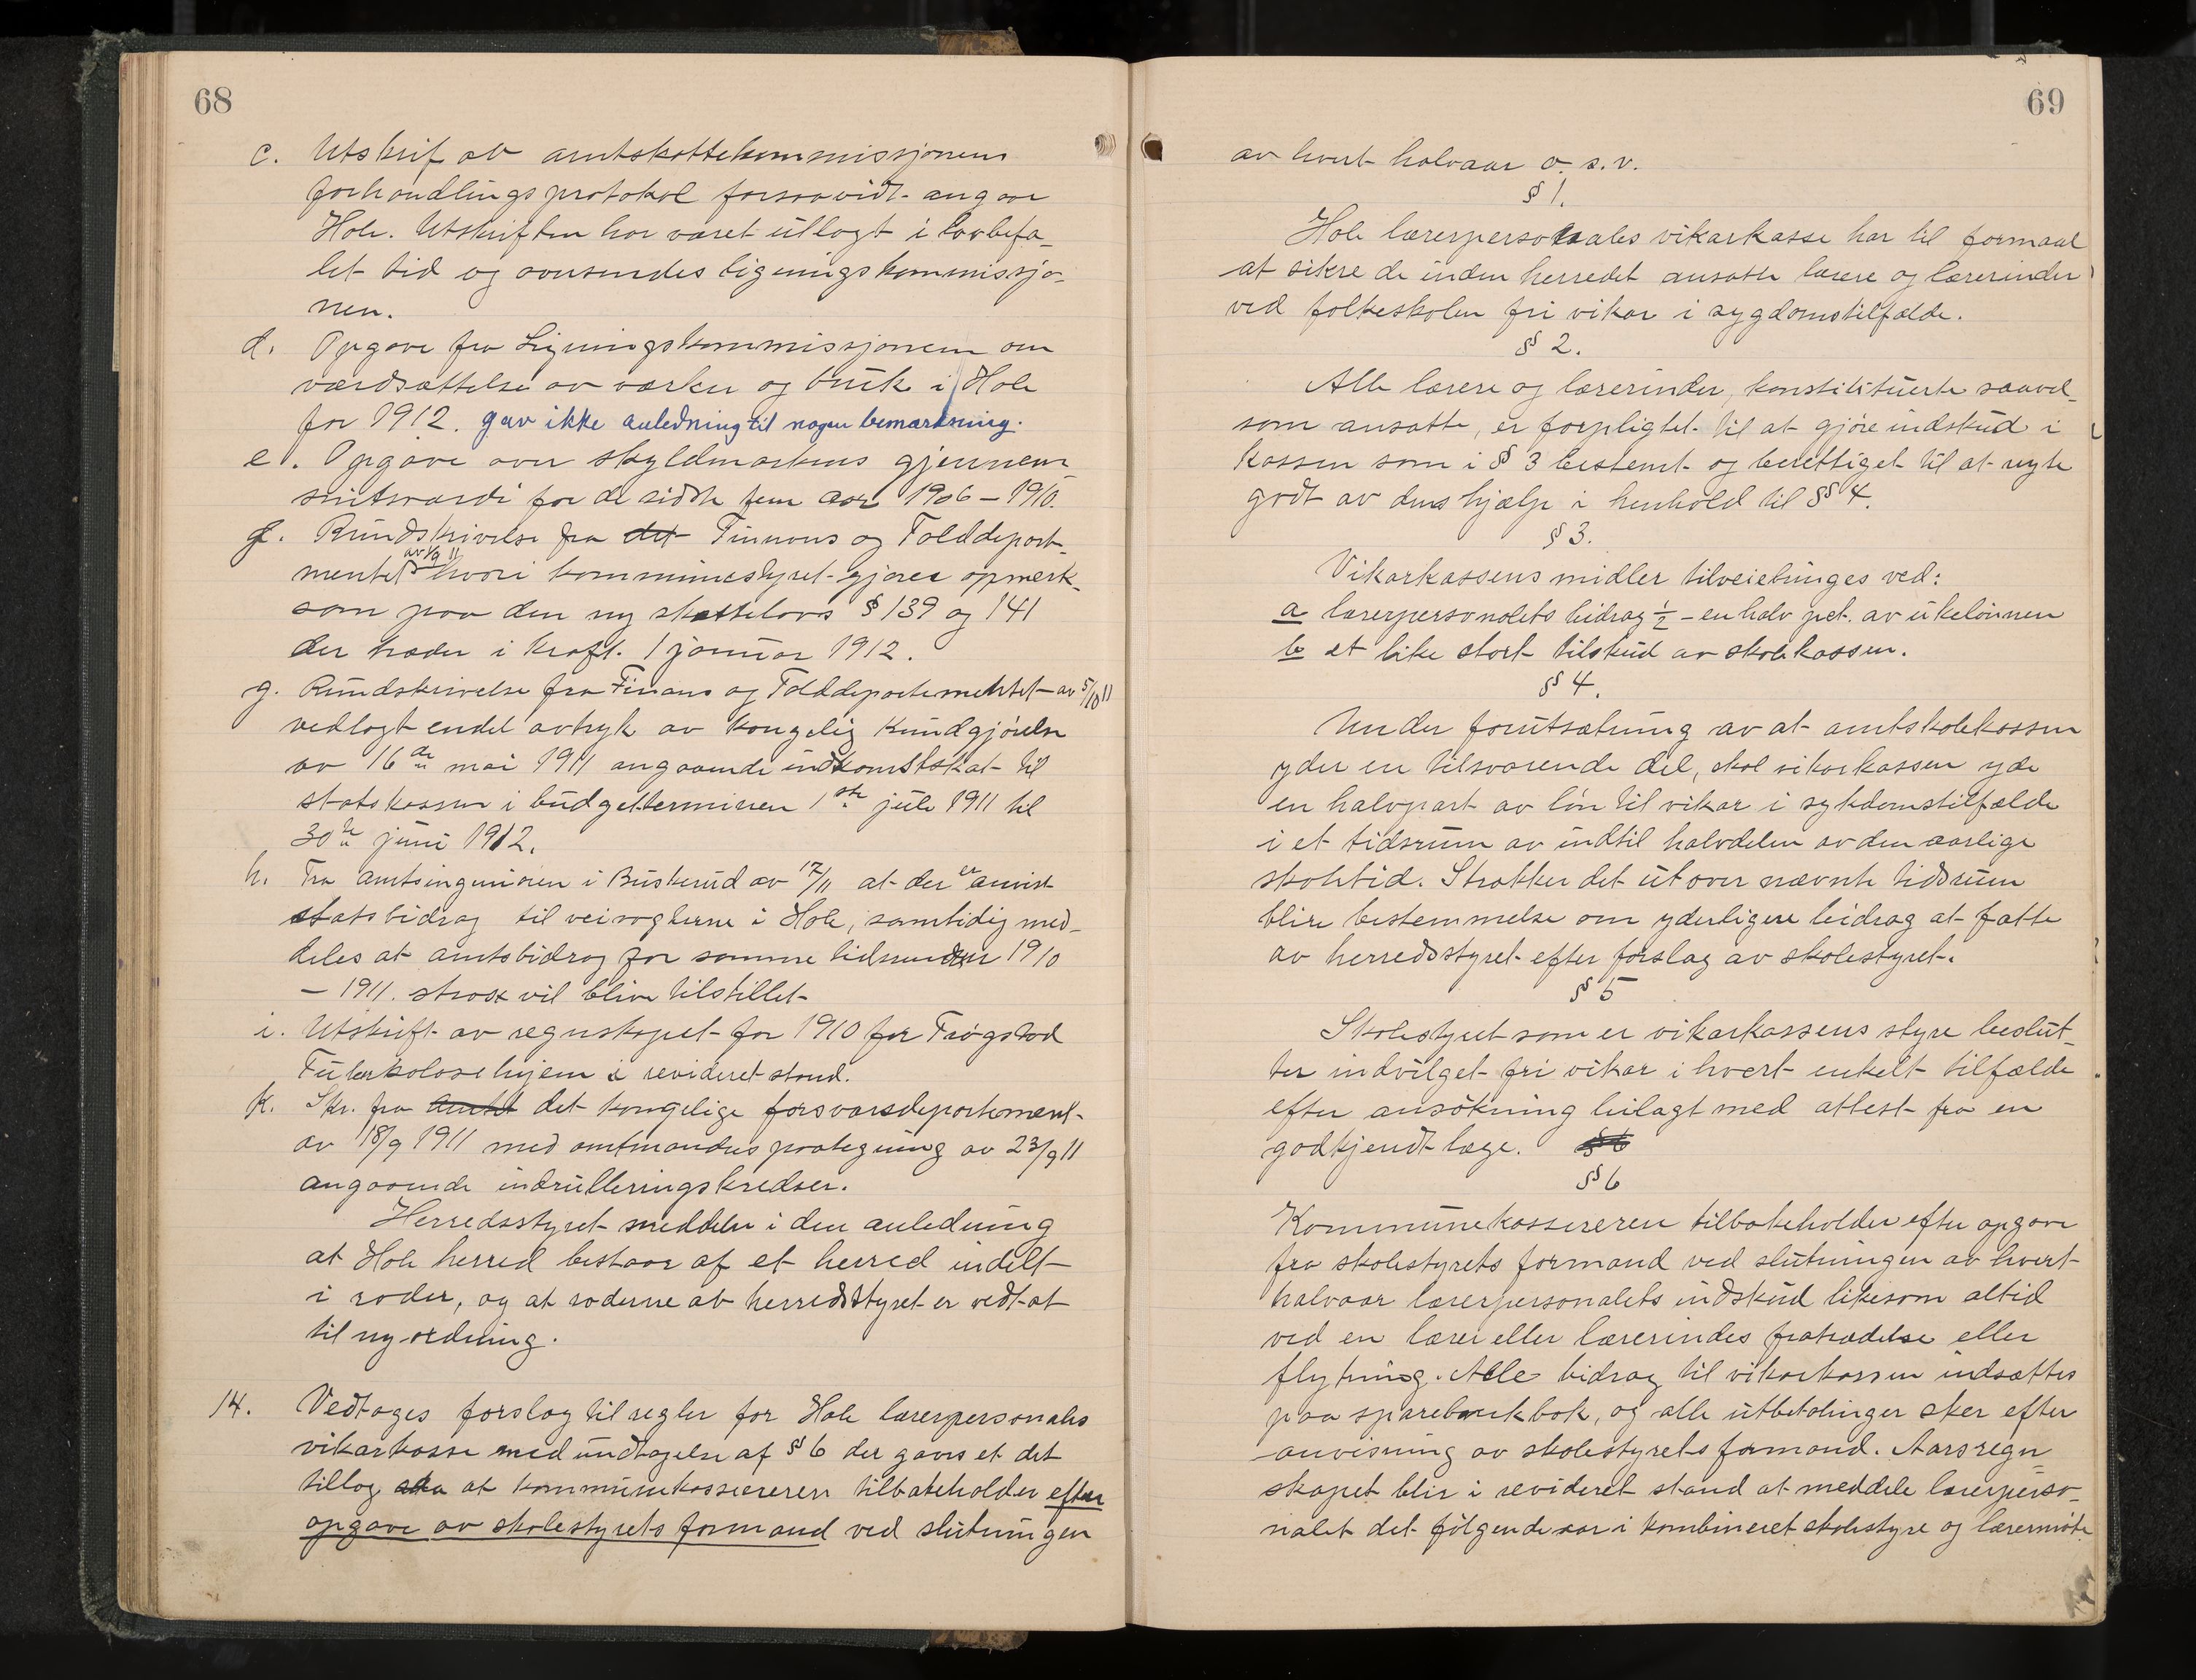 68
c. Utskrif av amtskattekommissjonens
forhandlingsprotokol forsaavidt angaar
Hole. Utskriften har været utlagt i lovbefa-
let tid og oversendes ligningskommissjo-
nen.
d. Opgave fra Ligningskommissjonen om
værdsættelse av værker og bruk i Hole
for 1912. gav ikke anledning til nogen bemærkning.
e. Opgave over skyldmarkens gjennem
snitsværdi for de sidste fem aar 1906–1910.
f. Rundskrivelse fra det Finnans og Tolddepart-
mentet hvori kommunestyret gjøres opmerk-
som paa den ny skattelovs § 139 og 141
der træder i kraft 1 januar 1912.
g. Rundskrivelse fra Finans og Tolddepartementet av 5/10 11
vedlagt endel avtryk av kongelig kundgjørelse
av 16de mai 1911 angaaende indkomstskat til
statskassen i budgetterminen 1ste juli 1911 til
30te juni 1912.
h. Fra amtsingeniøren i Buskerud av 17/11 at der er anvist
statsbidrag til veivogterne i Hole, samtidig med-
deles at amtsbidrag for samme tidsrum 1910
– 1911. strax vil blive tilstillet
i. Utskrift av regnskapet for 1910 for Frøgstad
Tuberkolosehjem i revideret stand.
k. Skr. fra Amtet det kongelige forsvarsdepartement
av 18/9 1911 med amtmandens paategning av 23/9 11
angaaende indrulleringskredser.
Herredsstyret meddeler i den anledning
at Hole herred bestaar af et herred indelt
i roder, og at roderne av herredsstyret er vedtat
til ny ordning.
14. Vedtages forslag til regler for Hole lærerpersonales
vikarkasse med undtagelse af § 6 der gaves et det
tillæg at kommunekassereren tilbakeholder efter
opgave av skolestyrets formand ved slutningen
69
av hvert halvaar o. s. v.
§ 1.
Hole lærerpersonales vikarkasse har til formaal
at sikre de inden herredet ansatte lærere og lærerinder
ved folkeskolen fri vikar i sygdomstilfælde.
§ 2.
Alle lærere og lærerinder, konstituerte saavel-
som ansatte, er forpligtet til at gjøre indskud i
kassen som i § 3 bestemt og berettiget til at nyte
godt av dens hjælp i henhold til § 4.
§ 3.
Vikarkassens midler tilveiebringes ved:
a lærerpersonalets bidrag ½ – en halv pct. av ukelønnen
b et like stort tilskud av skolekassen.
§ 4.
Under forutsætning av at amtskolekassen
yder en tilsvarende del, skal vikarkassen yde
en halvpart av løn til vikar i sykdomstilfælde
i et tidsrum av indtil halvdelen av den aarlige
skoletid. Strækker det utover nævnte tidsrum
blir bestemmelse om yderligere bidrag at fatte
av herredsstyret efter forslag av skolestyret.
§ 5
Skolestyret som er vikarkassens styre beslut-
ter indvilget fri vikar i hvert enkelt tilfælde
efter ansøkning bilagt med attest fra en
godkjendt læge. § 6
§ 6
Kommunekassereren tilbakeholder efter opgave
fra skolestyrets formand ved slutningen av hvert
halvaar lærerpersonalets indskud likesom altid
ved en lærer eller lærerindes fratrædelse eller
flytning. Alle bidrag til vikarkassen indsættes
paa sparebankbok, og alle utbetalinger sker efter
anvisning av skolestyrets formand. Aarsregn-
skapet blir i revideret stand at meddele lærerperso-
nalet det følgende aar i kombineret skolestyre og lærermøte